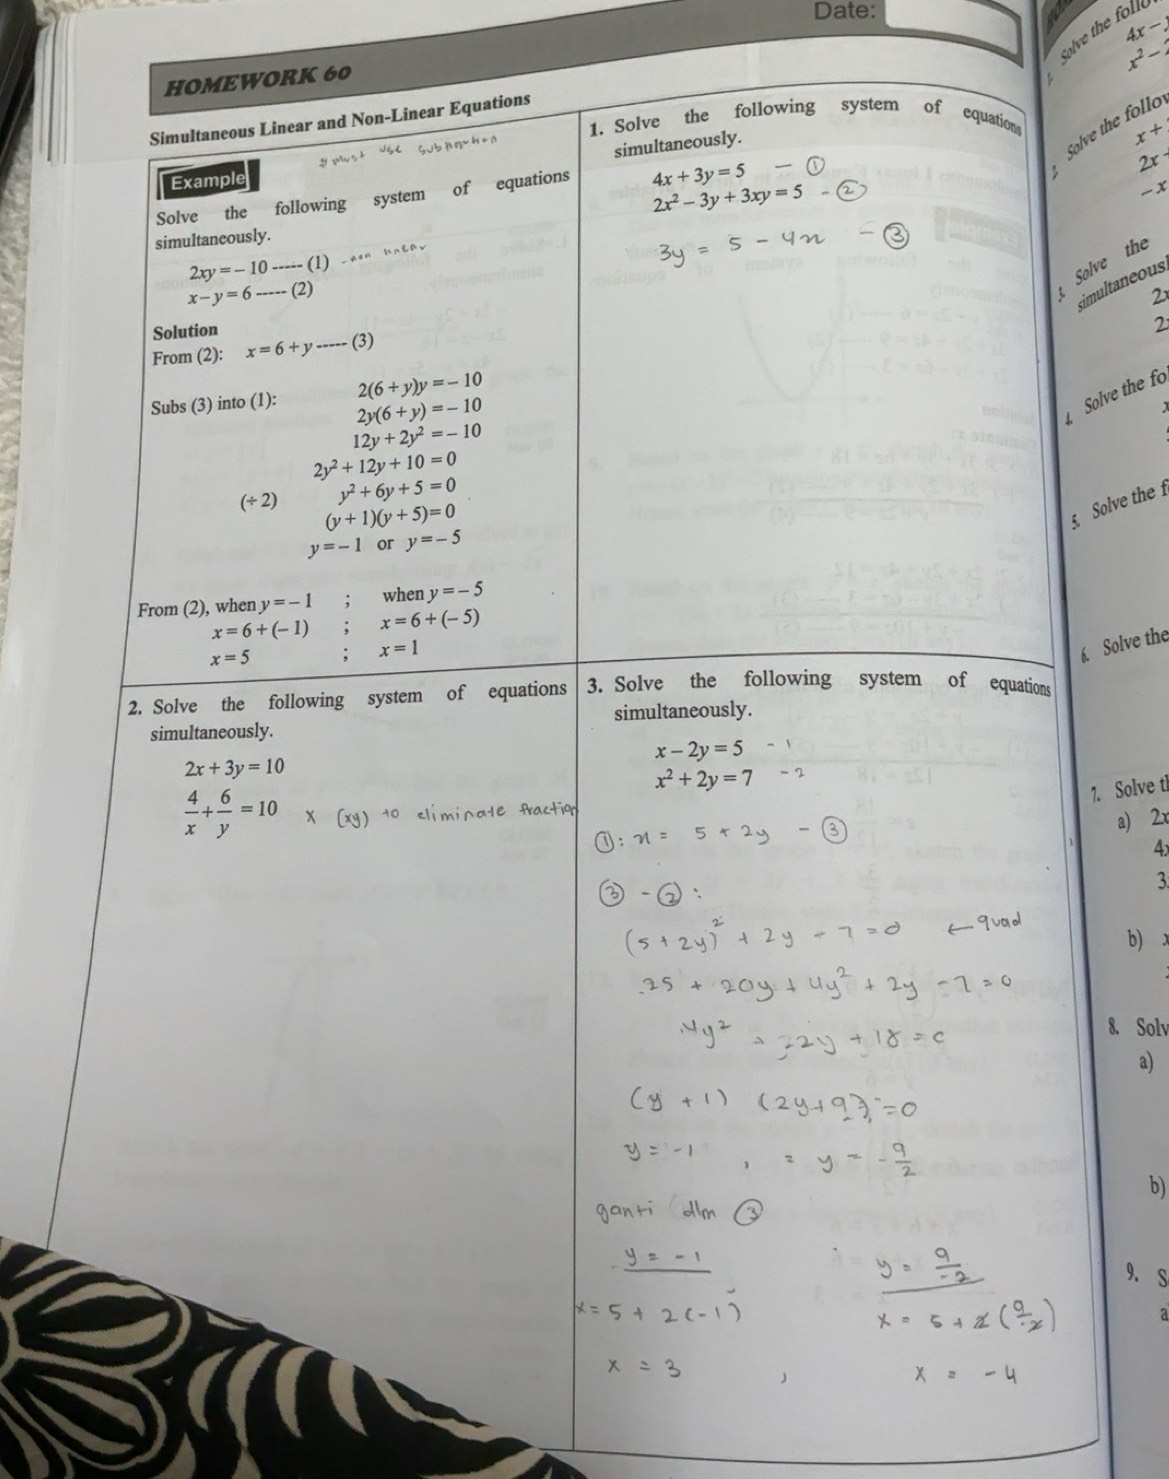 Date:
HOMEWORK 60
Simultaneous Linear and Non-Linear Equations
# must use substitution
Example
Solve the following system of equations
simultaneously.
2xy = – 10 ----- (1) - non linear
x – y = 6 ----- (2)
Solution
From (2): x = 6 + y ----- (3)
Subs (3) into (1): 2(6 + y)y = – 10
2y(6 + y) = – 10
12y + 2y² = – 10
2y² + 12y + 10 = 0
(÷ 2) y² + 6y + 5 = 0
(y + 1)(y + 5) = 0
y = – 1 or y = – 5
From (2), when y = – 1 ; when y = – 5
x = 6 + (– 1) ; x = 6 + (– 5)
x = 5 ; x = 1
1. Solve the following system of equations
simultaneously.
4x + 3y = 5 – ①
2x² – 3y + 3xy = 5 - ②
3y = 5 - 4x - ③
2. Solve the following system of equations
simultaneously.
2x + 3y = 10
4/x + 6/y = 10 x (xy) to eliminate fraction
3. Solve the following system of equations
simultaneously.
x – 2y = 5 - 1
x² + 2y = 7 - 2
①: x = 5 + 2y - ③
③ - ② :
(5 + 2y)² + 2y - 7 = 0 ← quad
25 + 20y + 4y² + 2y - 7 = 0
4y² + 22y + 18 = 0
(y + 1) (2y + 9) = 0
y = -1 , = y = -9/2
ganti dlm ③
y = -1 y = 9/-2
x = 5 + 2(-1) x = 5 + 2(9/-2)
x = 3 , x = -4
1. Solve the follo
4x –
x² –
2. Solve the follow
x +
2x
–x
3. Solve the
simultaneousl
2x
2
4. Solve the fo
5. Solve the f
6. Solve the
7. Solve t
a) 2x
4x
3
b)
8. Solv
a)
b)
9. S
a